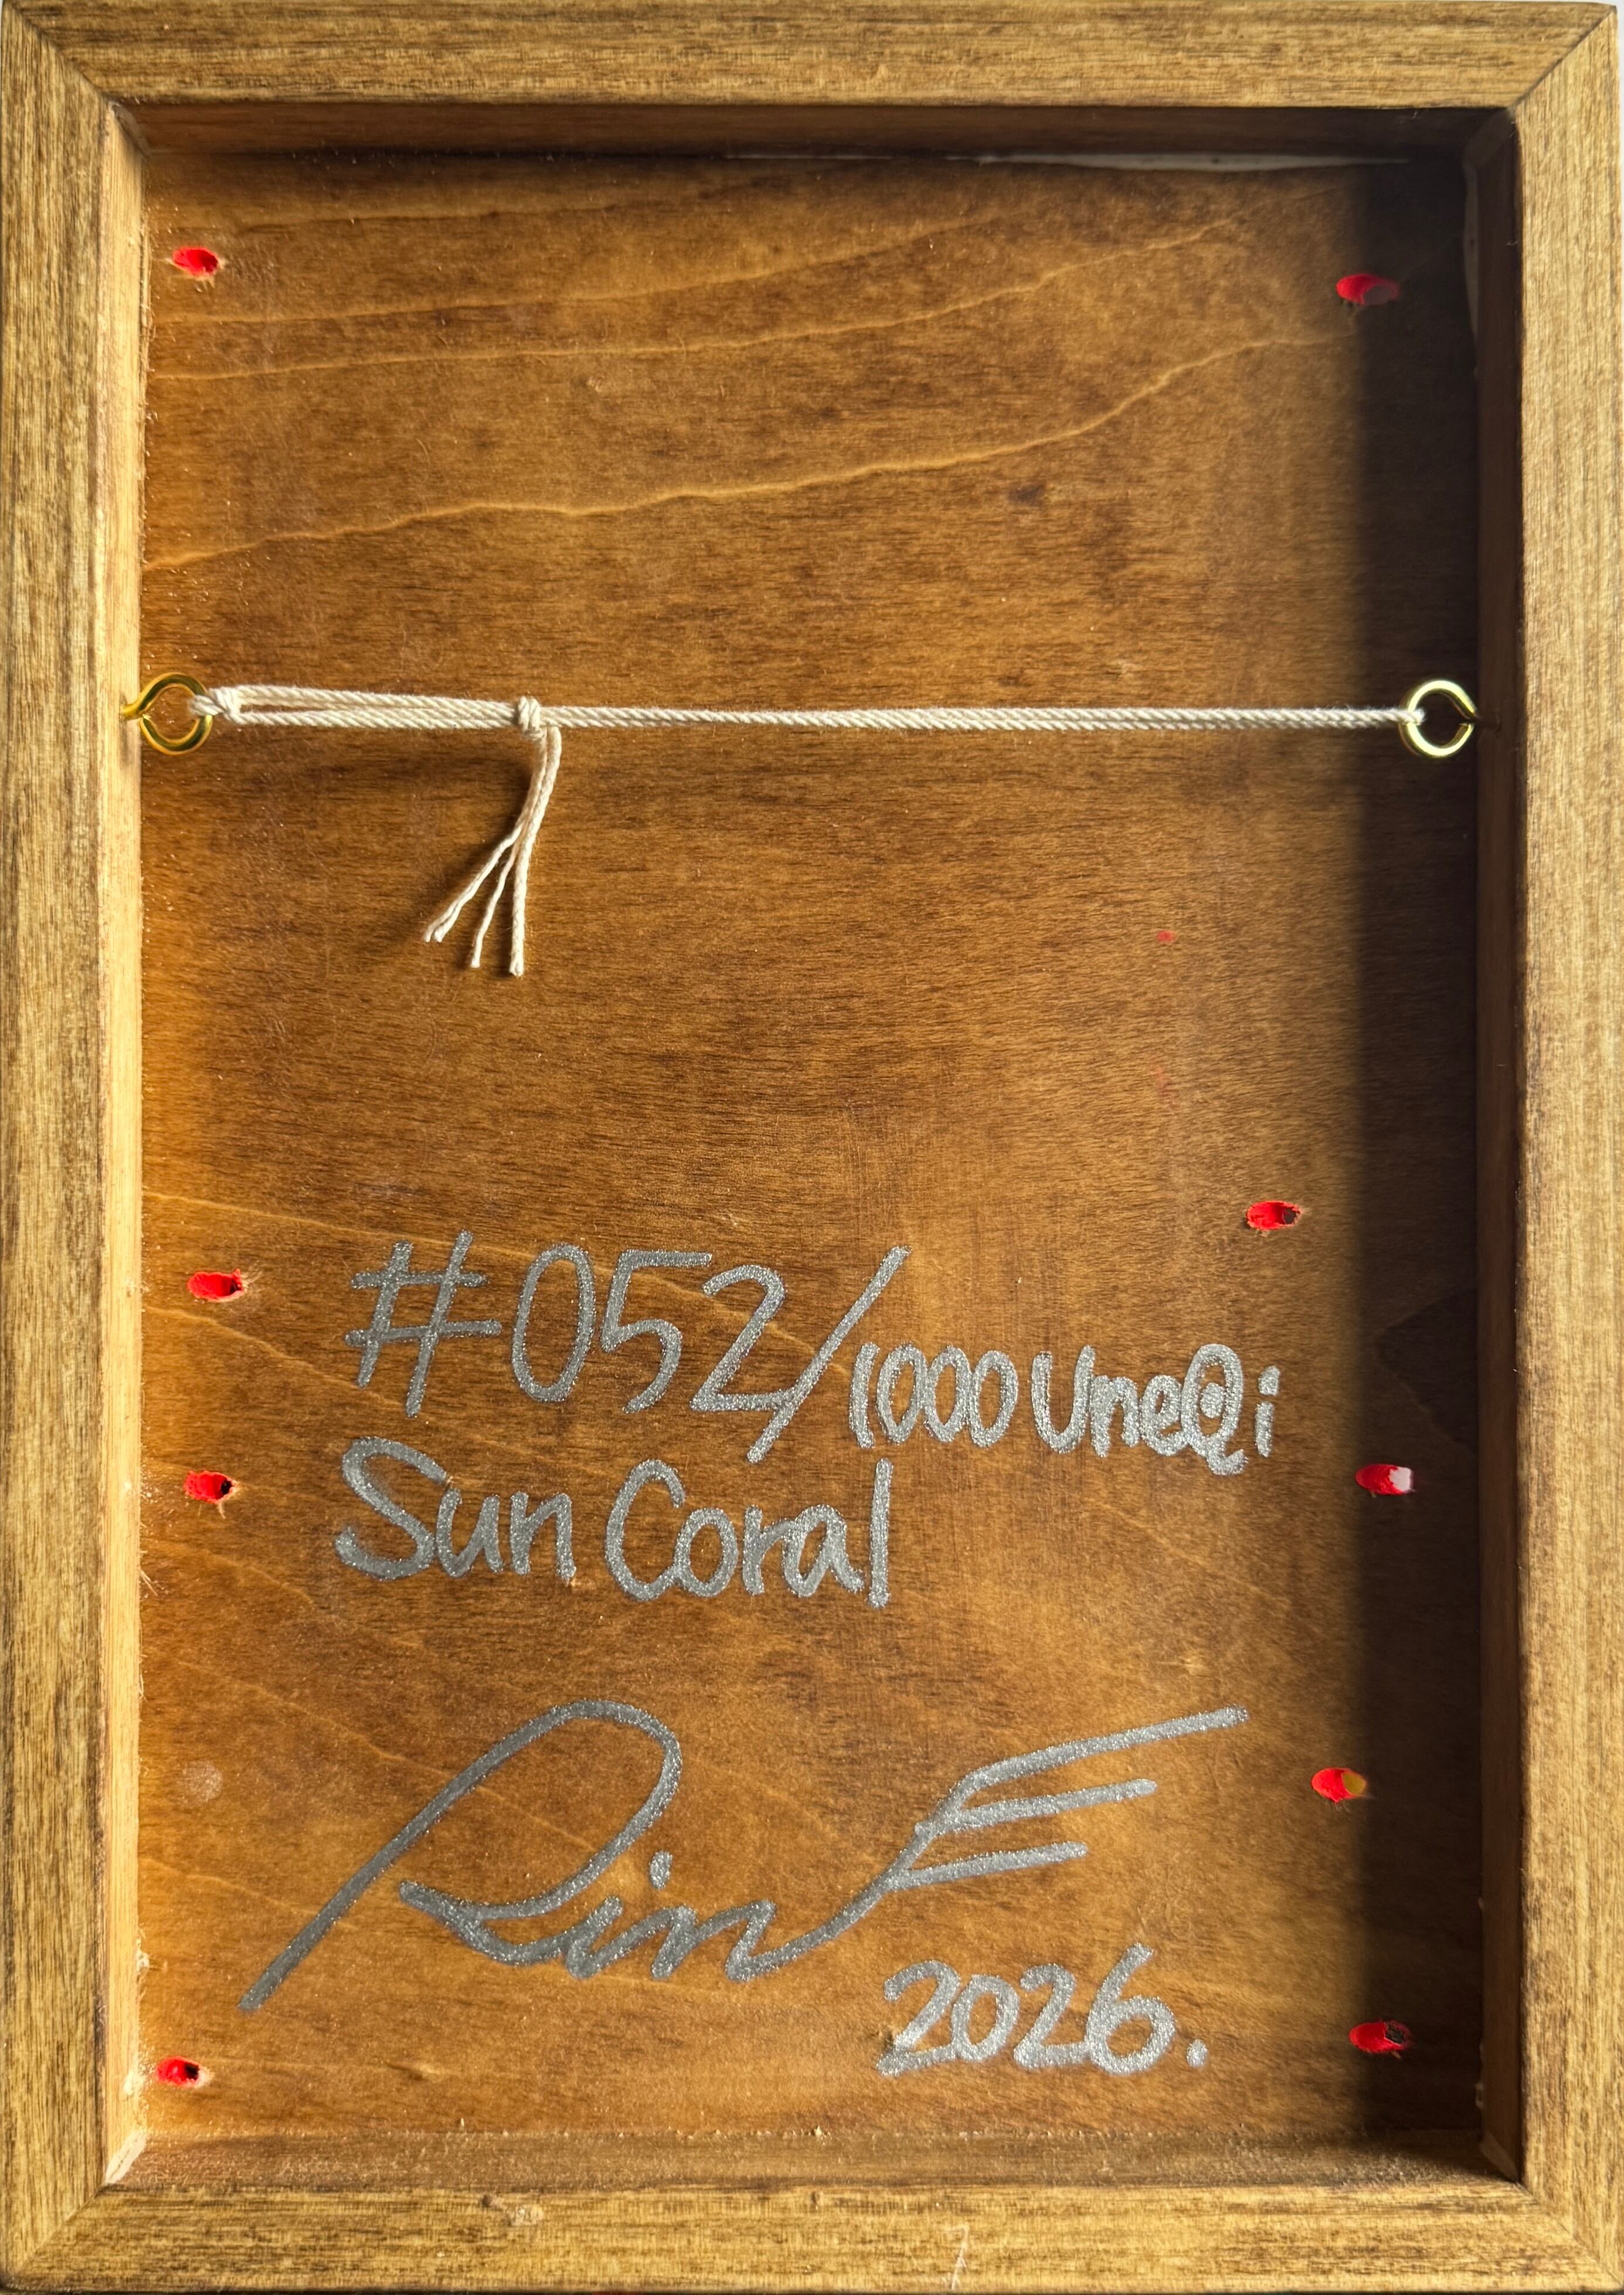 #052/1000UneQi
Sun Coral
Rin E
2026.